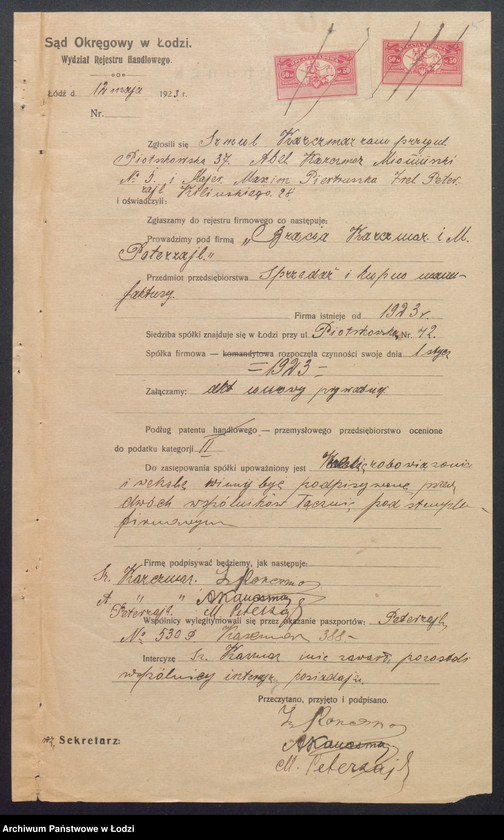 Sąd Okręgowy w Łodzi.
Wydział Rejestru Handlowego.
Łódź d. 12 maja 1923 r.
Nr.
Zgłosili się Szmul Karczmar zam przy ul.
Piotrkowska 37. Abel Karczmar
№ 5 i Majer, Maxim Pietruszka Izel Peter-
zajl Kilińskiego 28
i oświadczyli:
Zgłaszamy do rejestru firmowego co następuje:
Prowadzimy pod firmą „Bracia Karczmar i M.
Peterzajl."
Przedmiot przedsiębiorstwa Sprzedaż i kupno manu-
faktury.
Firma istnieje od 1923 r.
Siedziba spółki znajduje się w Łodzi przy ul. Piotrkowska Nr. 42.
Spółka firmowa — komandytowa rozpoczęła czynności swoje dnia 1 stycz
— 1923 —
Załączamy: akt umowy prywatnej
Podług patentu handlowego — przemysłowego przedsiębiorstwo ocenione
do podatku kategorji II
Do zastępowania spółki upoważniony jest zobowiązania
i weksle winny być podpisywane przez
dwóch wspólników łącznie pod stemplem
firmowym
Firmę podpisywać będziemy, jak następuje:
Sz. Karczmar.
A. „ „ AKarczmar
Peterzajl. M. Peterzajl
Wspólnicy wylegitymowali się przez okazanie paszportów: Peterzajl
№ 530 Karczmar 388 —
Intercyzę Sz. Karczmar nie zawarł, pozostali
wspólnicy intercyzę posiadają.
Przeczytano, przyjęto i podpisano.
AKarczmar
M. Peterzajl
Sekretarz:
Archiwum Państwowe w Łodzi